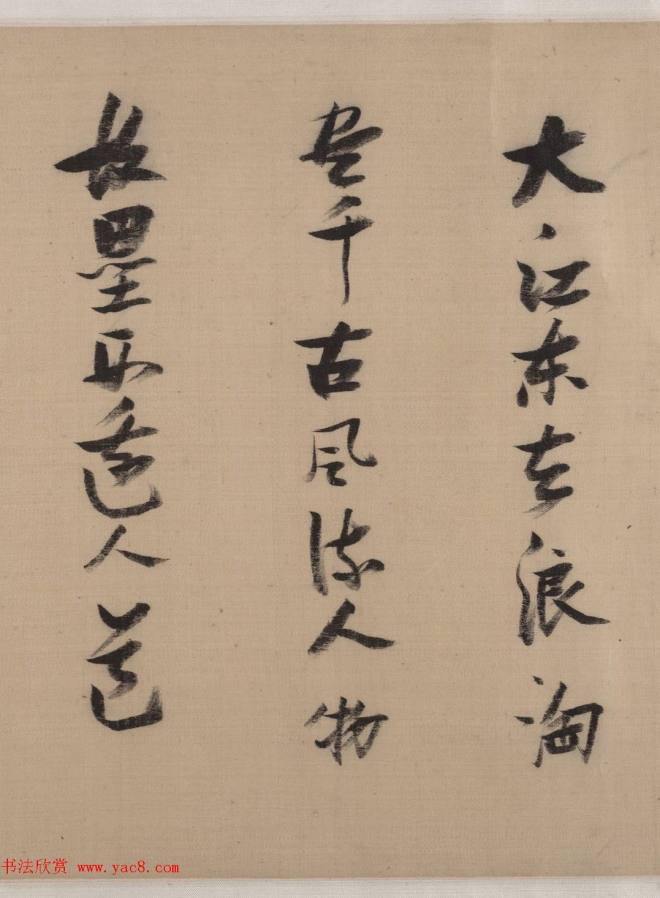 大江东去浪淘
尽千古风流人物
故垒西邊人道
书法欣赏 www.yac8.com